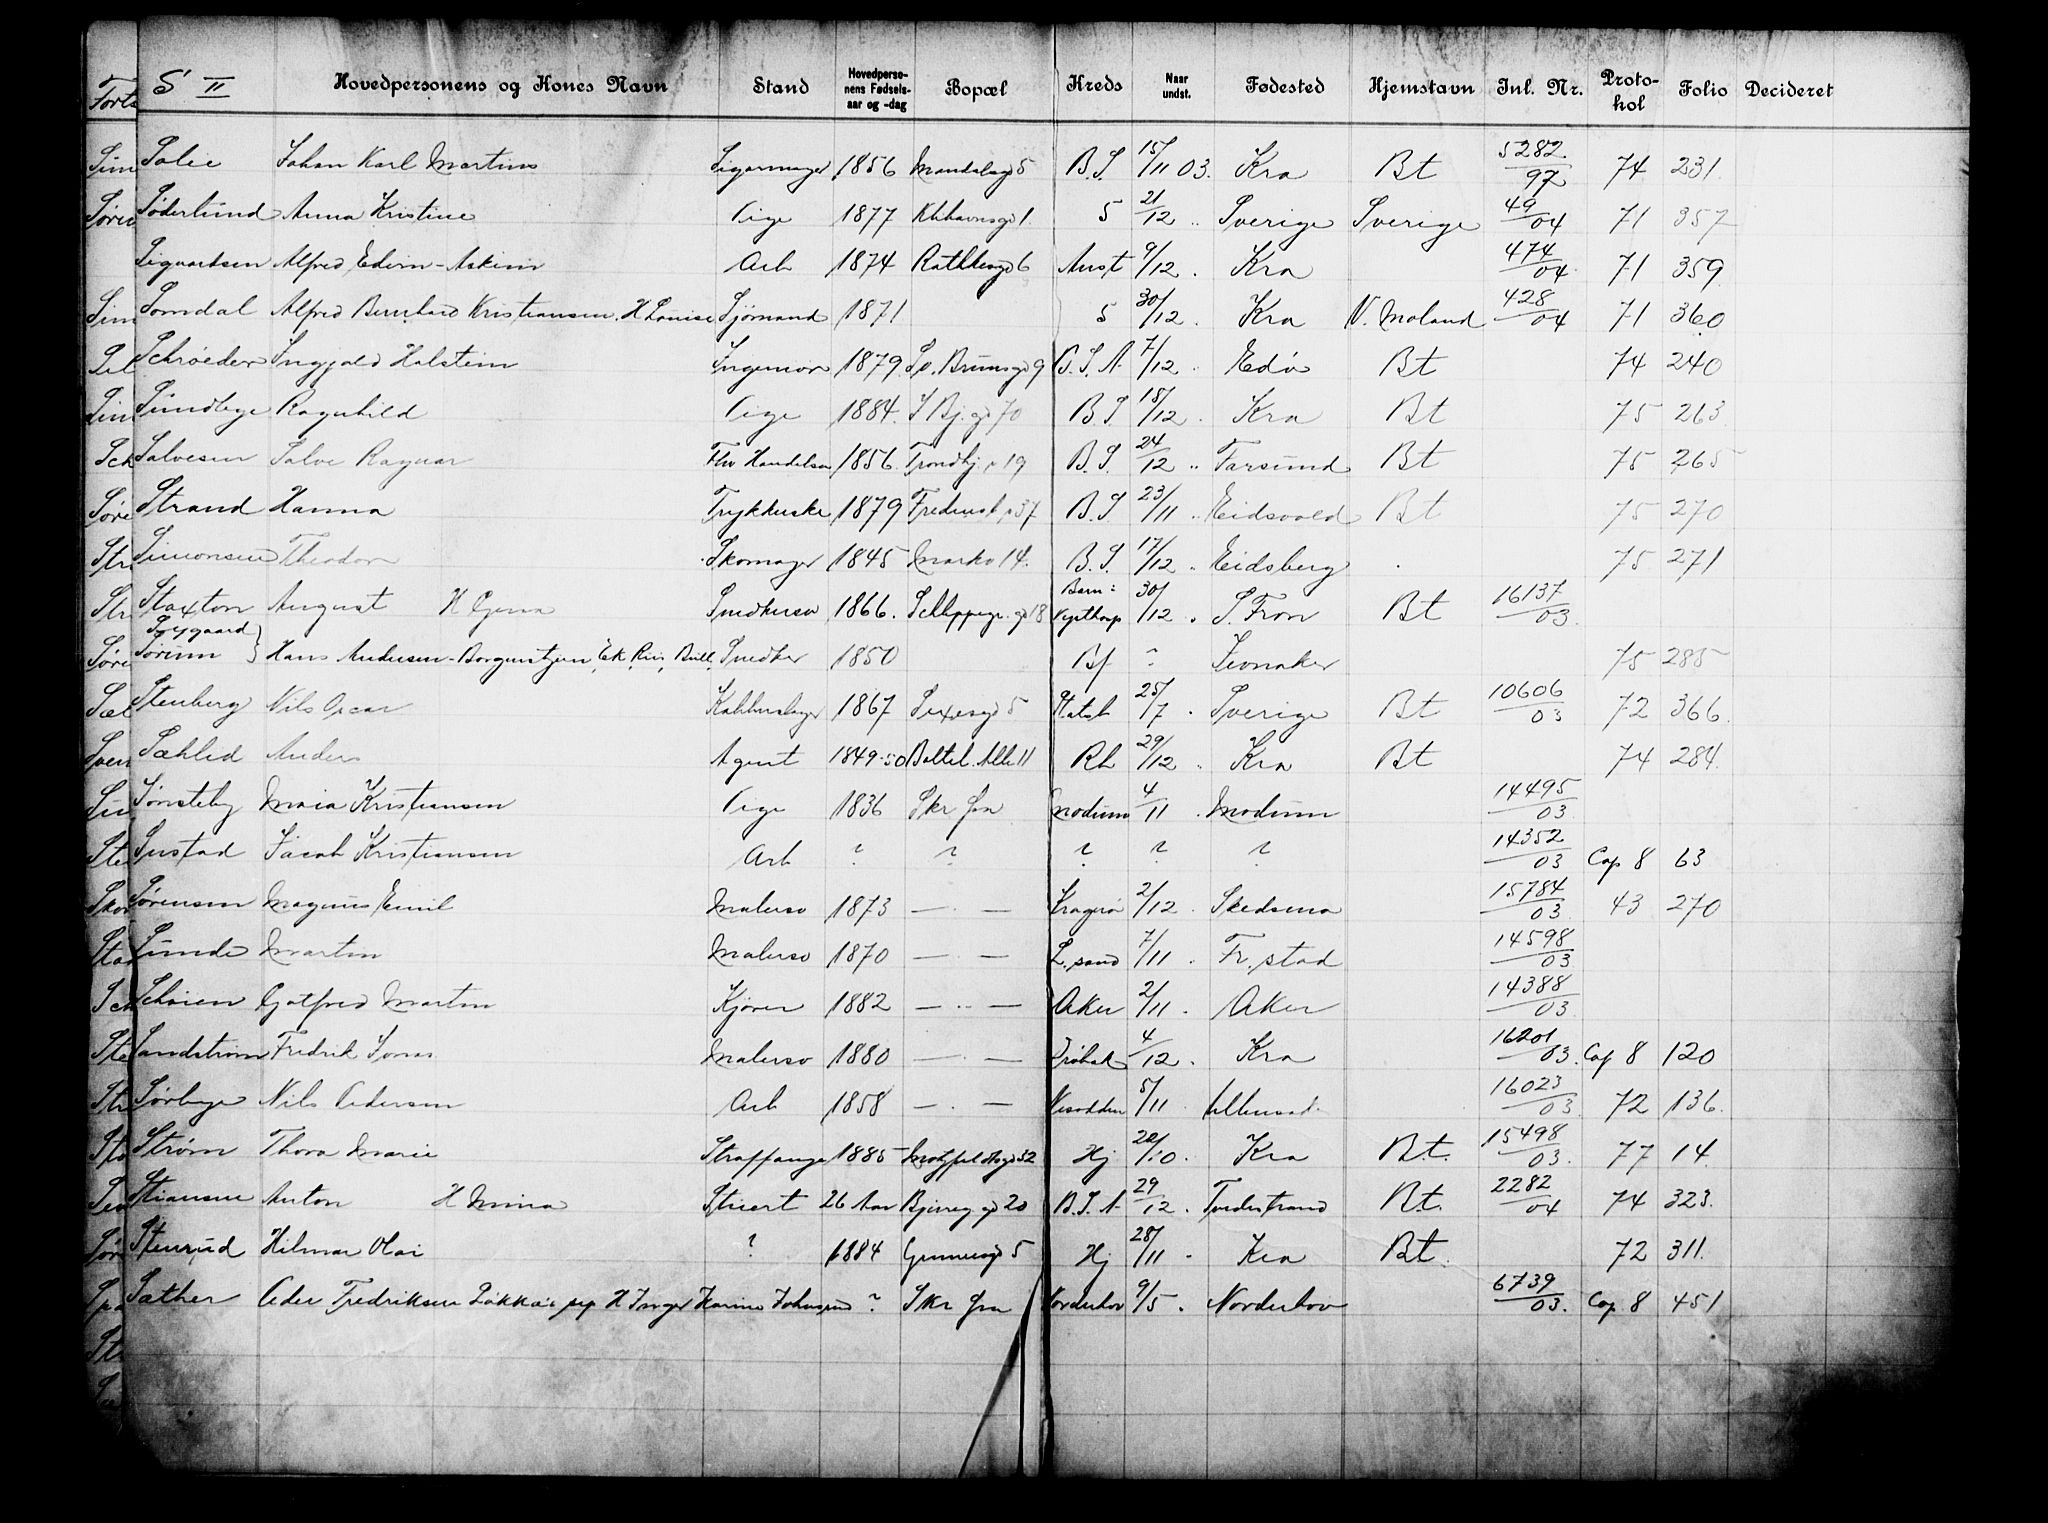 S II Hovedpersonens og Kones Navn Stand Hovedpersonens Fødselsaar og -dag Bopæl Kreds Naar undst. Fødested Hjemstavn Inl. Nr. Protokol Folio Decideret
Salie Johan Karl Martins Sigarmager 1856 Mandalsgd 5 B.S. 15/11 03. Kra Bt 5282/97 74 231.
Søderlund Anna Kristine Pige 1877 Khhavnsgd 1. 5 21/12 " Sverige Sverige 49/04 71 357
Siguartsen Alfred Edvin-Askim Arb 1874 Rathkesgd 6 Anst 9/12 . Kra 474/04 71 359
Somdal Alfred Bernhard Kristiansen. H Louise Sjømand 1871 5 30/12 . Kra N. Moland 428/04 71 360
Schrøeder Ingjald Holstein Ingeniør 1879. Sv. Bruunsgd 9 B.S.A. 7/12 " Edø Bt 74 240
Sundbye Ragnhild Pige 1884. 70 B.S. 18/12 . Kra Bt 75 263
Salvesen Salve Ragnar Fhv Handelsm 1856. Trondhj. v 19 B.S. 24/12 " Farsund Bt 75 265
Strand Hanna Trykkerske 1879 Frederiksb. v 37 B.S 23/11 " Eidsvold Bt 75 270
Simonsen Theodor Skomager 1845 Markv 14. B.S. 17/12 " Eidsberg 75 271
Staxton August H Gina Snedkersv 1866. Schleppegr. gd 18 Barn: 30/12 . S. Fron Bt 16137/03
Sørum Hans Andersen-Borgenstjern, Ek, Riis, Bull, Snedker 1850 Bf ? Jevnaker 75 285
Stenberg Nils Oscar Kakkelsbyer 1867 Sexesgd 5 Statsb 25/7 . Sverige Bt 10606/03 72 366
Sæhlid Anders Agent 1849-50 Beltel. Alle 11 Rh 29/12 " Kra Bt 74 284.
Sønsteby Maria Kristiansen Pige 1836 Skr fra Modum 4/11 . Modum 14495/03
Sustad Jacob Kristiansen Arb ? ? ? ? ? 14352/03 Cop 8 63
Sørensen Magnus Emil Malersv 1873 — . — Kragerø 2/12 . Skedsmo 15784/03 43 270
Sunde Martin Malersv 1870 — . — L. sand 7/11 . Fr. stad 14598/03
Schøien Gotfred Martin Kjører 1882 — " — Aker 2/11 . Aker 14388/03
Sandstrøm Fredrik Jonas Malersv 1880 — . — Drøbak 4/12 . Kra 16201/03. Cop 8 120
Sørbye Nils Pedersen Arb 1858 — . — Nesodden 5/11 . Ullensak. 16023/03 72 136.
Strøm Thora Marie Straffange 1885 Motzfeldtsgd 32 Hj 20/10. Kra Bt. 15498/03. 77 14.
Stiansen Anton H Mina Stuert 26 Aar Bjerreg gd 20 B.S.A. 29/12 . Tvedestrand Bt. 2282/04 74 323.
Stenrud Hilmar Olai ? 1884 Grønnegd 5 Hj 28/11 . Kra Bt. 72 311.
Sæther Peder Fredriksen Løkka's pp H Inger Karine Johansen ? Skr fra Norderhov 9/5 . Norderhov 6739/03. Cop. 8 451